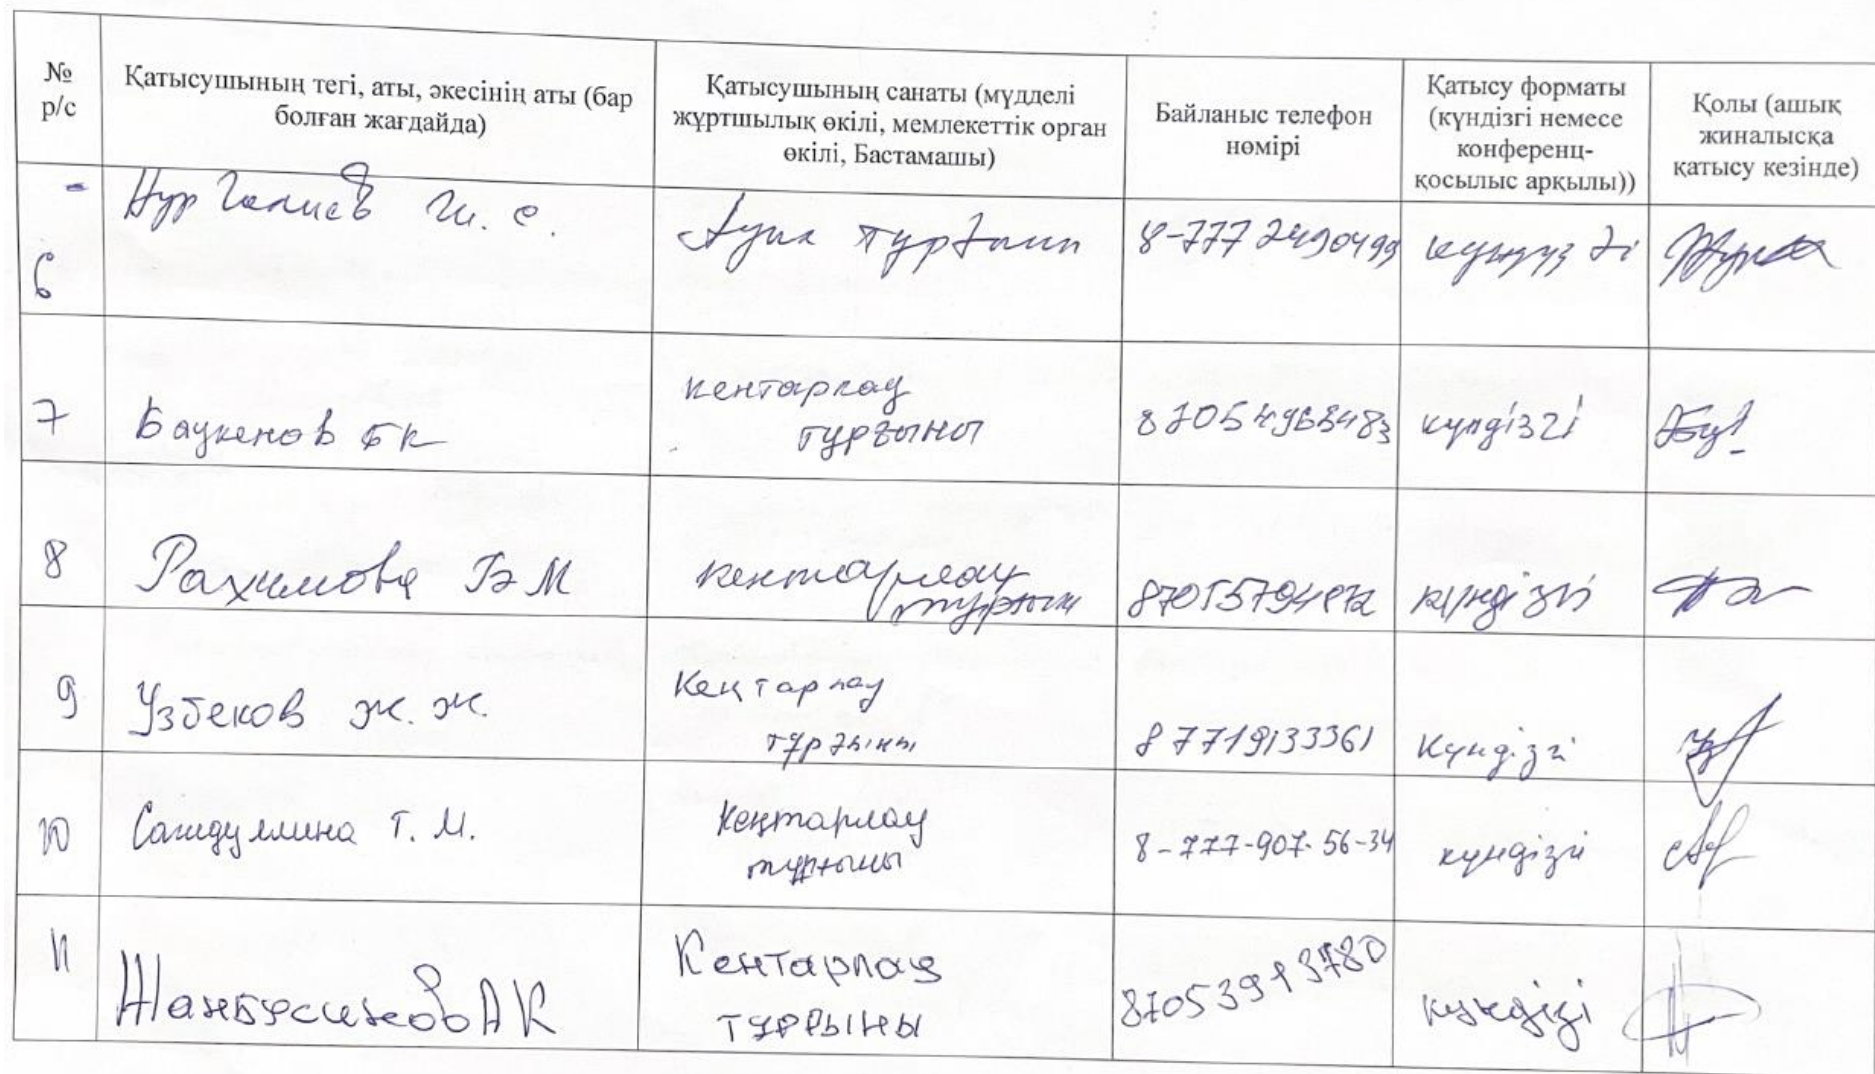 №
р/с
Қатысушының тегі, аты, әкесінің аты (бар
болған жағдайда)
Қатысушының санаты (мүдделі
жұртшылық өкілі, мемлекеттік орган
өкілі, Бастамашы)
Байланыс телефон
нөмірі
Қатысу форматы
(күндізгі немесе
конференц-
қосылыс арқылы))
Қолы (ашық
жиналысқа
қатысу кезінде)
6
Нургалиев
8-777 2490499
7
Баукенов БК
кентарлау
тұрғыны
күндізгі
8
Рахимова БЭМ
кентарлау
күндізгі
9
Узбеков Ж. Ж.
Кеңтарлау
тұрғыны
8 7719133361
Күндізгі
10
Сагидуллина Т. М.
Кеңтарлау
тұрғыны
8-777-907-56-34
күндізгі
11
Жанбусинов А К
Кентарлау
тұрғыны
87053913780
күндізгі